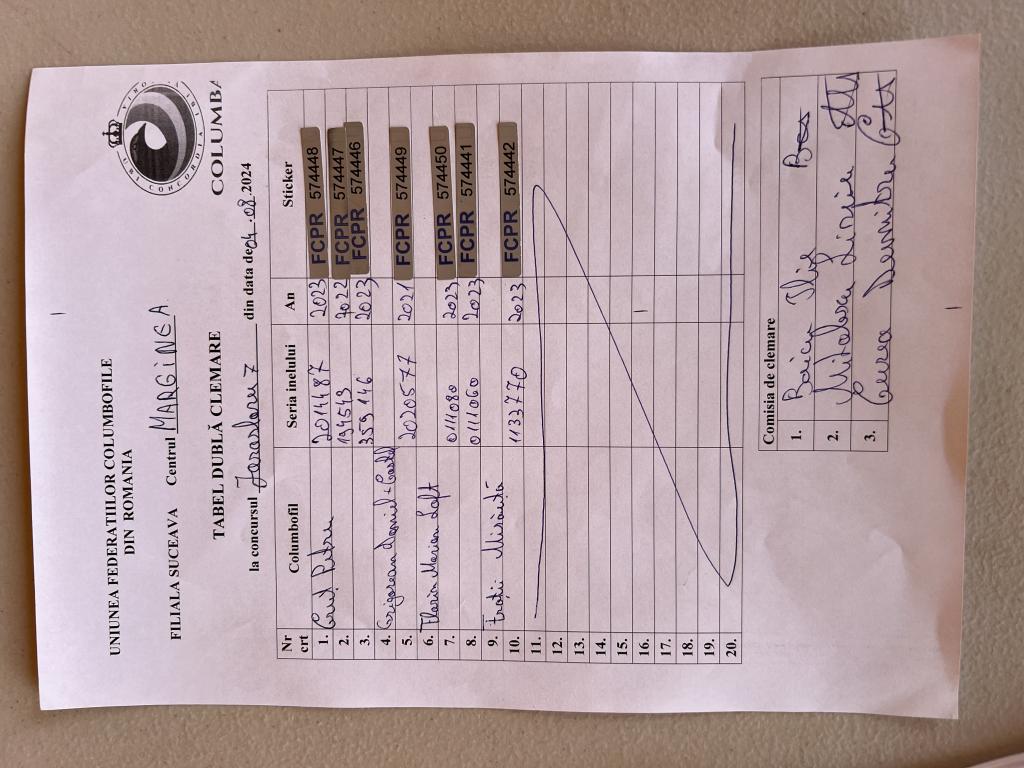 UNIUNEA FEDERATIILOR COLUMBOFILE
DIN ROMANIA
FILIALA SUCEAVA Centrul MARGINEA
COLUMBA
TABEL DUBLĂ CLEMARE
la concursul din data de 04.08.2024
Nr crt Columbofil Seria inelului An Sticker
1. Petru 2014487 2023 FCPR 574448
2. 134513 2022 FCPR 574447
3. 359146 2023 FCPR 574446
4. Grigorean Daniel
5. 2020577 2021 FCPR 574449
6. Florin Marian Loft
7. 0111080 2023 FCPR 574450
8. 0111060 2023 FCPR 574441
9. Frații
10. 1133770 2023 FCPR 574442
11.
12.
13.
14.
15.
16.
17.
18.
19.
20.
Comisia de clemare
1. Ilie
2.
3. Dumitru